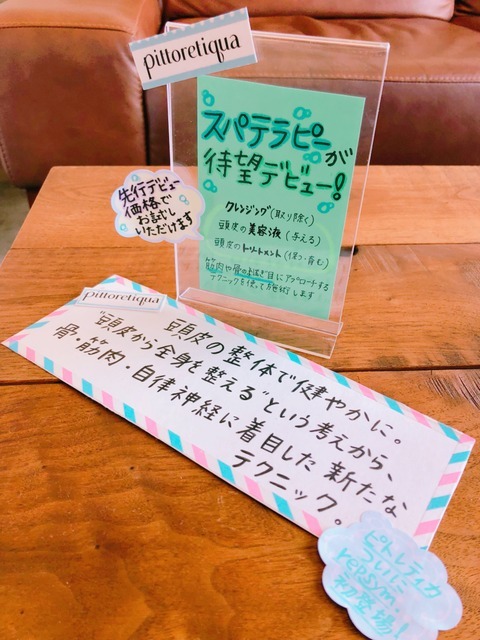 pittoretiqua
スパテラピーが
待望デビュー!
クレンジング(取り除く)
頭皮の美容液(与える)
頭皮のトリートメント(保つ・育む)
筋肉や骨のつなぎ目にアプローチする
テクニックを使って施術します
先行デビュー
価格で
お試し
いただけます
pittoretiqua
頭皮の整体で健やかに。
"頭皮から全身を整える"という考えから、
骨・筋肉・自律神経に着目した新たな
テクニック。
ピトレティカ
ついに
repsim.
初登場!